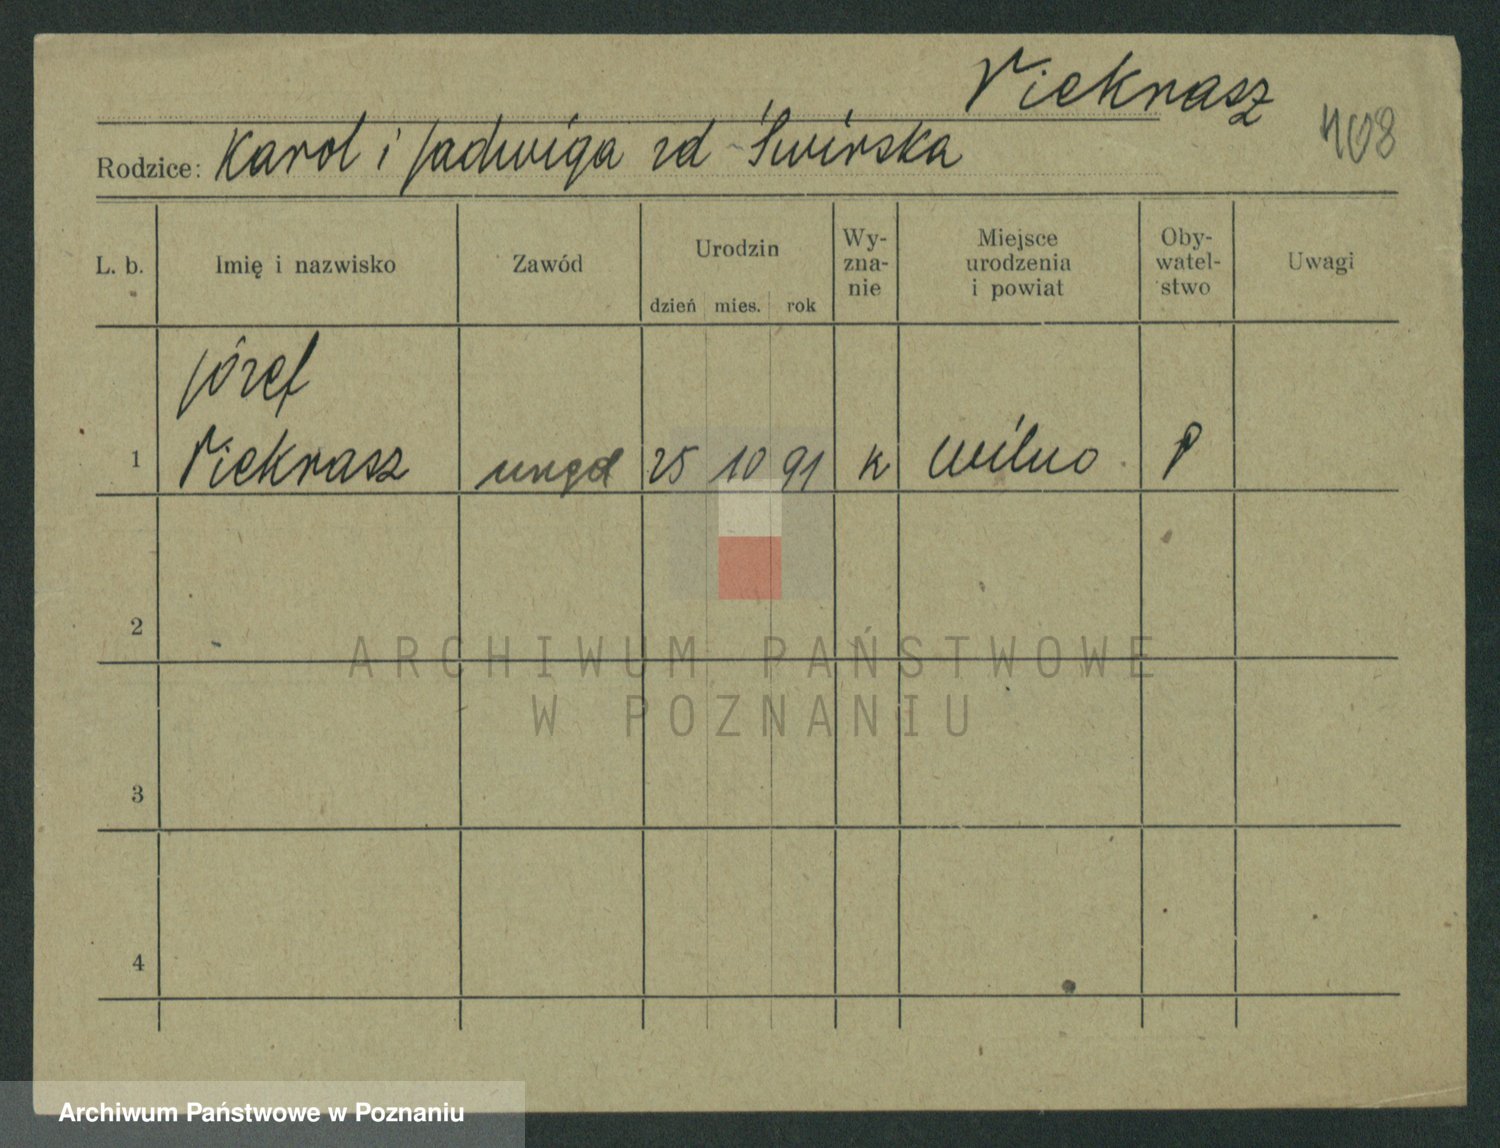 Niekrasz
408
Rodzice: Karol i Jadwiga zd Świrska
L. b. Imię i nazwisko Zawód Urodzin dzień mies. rok Wy-zna-nie Miejsce urodzenia i powiat Oby-watel-stwo Uwagi
Józef
1 Niekrasz urzęd 25 10 91 k Wilno P
2
3
4
ARCHIWUM PAŃSTWOWE
W POZNANIU
Archiwum Państwowe w Poznaniu